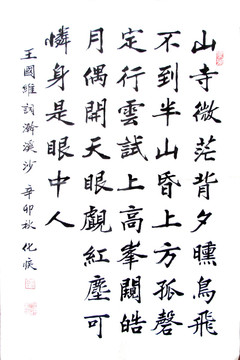 山寺微茫背夕曛鳥飛
不到半山昏上方孤磬
定行雲試上高峯闚皓
月偶開天眼覷紅塵可
憐身是眼中人
王國維詞澣溪沙 辛卯秋 化